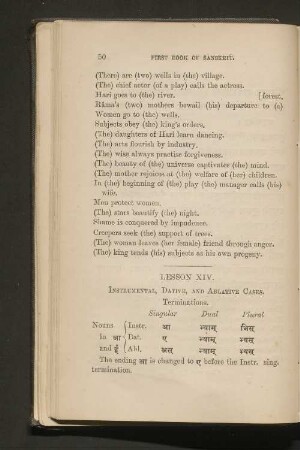 50 FIRST BOOK OF SANSKRIT.
(There) are (two) wells in (the) village.
(The) chief actor (of a play) calls the actress.
Hari goes to (the) river. [forest.
Ráma's (two) mothers bewail (his) departure to (a)
Women go to (the) wells.
Subjects obey (the) king's orders.
(The) daughters of Hari learn dancing.
(The) arts flourish by industry.
(The) wise always practise forgiveness.
(The) beauty of (the) universe captivates (the) mind.
(The) mother rejoices at (the) welfare of (her) children.
In (the) beginning of (the) play (the) manager calls (his)
wife.
Men protect women.
(The) stars beautify (the) night.
Shame is conquered by impudence.
Creepers seek (the) support of trees.
(The) woman leaves (her female) friend through anger.
(The) king tends (his) subjects as his own progeny.
LESSON XIV.
INSTRUMENTAL, DATIVE, AND ABLATIVE CASES.
Terminations.
Singular Dual Plural
NOUNS Instr. आ भ्याम् भिस्
in आ Dat. ए भ्याम् भ्यस्
and ई Abl. अस् भ्याम् भ्यस्
The ending आ is changed to ए before the Instr. sing.
termination.